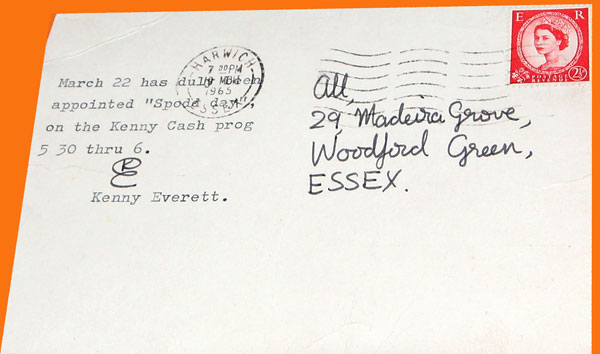 March 22 has duly been
appointed "Spode day",
on the Kenny Cash prog
5 30 thru 6.
E
Kenny Everett.
HARWICH
7 30PM
1965
ESSEX
E R
POSTAGE
REVENUE
2½
All,
29, Madeira Grove,
Woodford Green,
ESSEX.